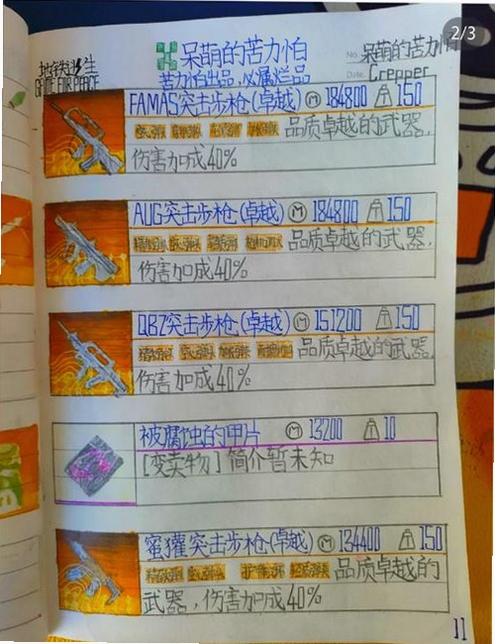 2/3
呆萌的苦力怕
苦力怕出品,必属烂品
No. 呆萌的苦力怕
Date. Crepper
GAME FOR PEACE
FAMAS突击步枪(卓越) M 184800 150
品质卓越的武器,
伤害加成40%
AUG突击步枪(卓越) M 184800 150
品质卓越的武器,
伤害加成40%
QBZ突击步枪(卓越) M 151200 150
品质卓越的武器,
伤害加成40%
被腐蚀的甲片 M 13200 10
[变卖物]简介暂未知
蜜獾突击步枪(卓越) M 134400 150
品质卓越的
武器,伤害加成40%
11